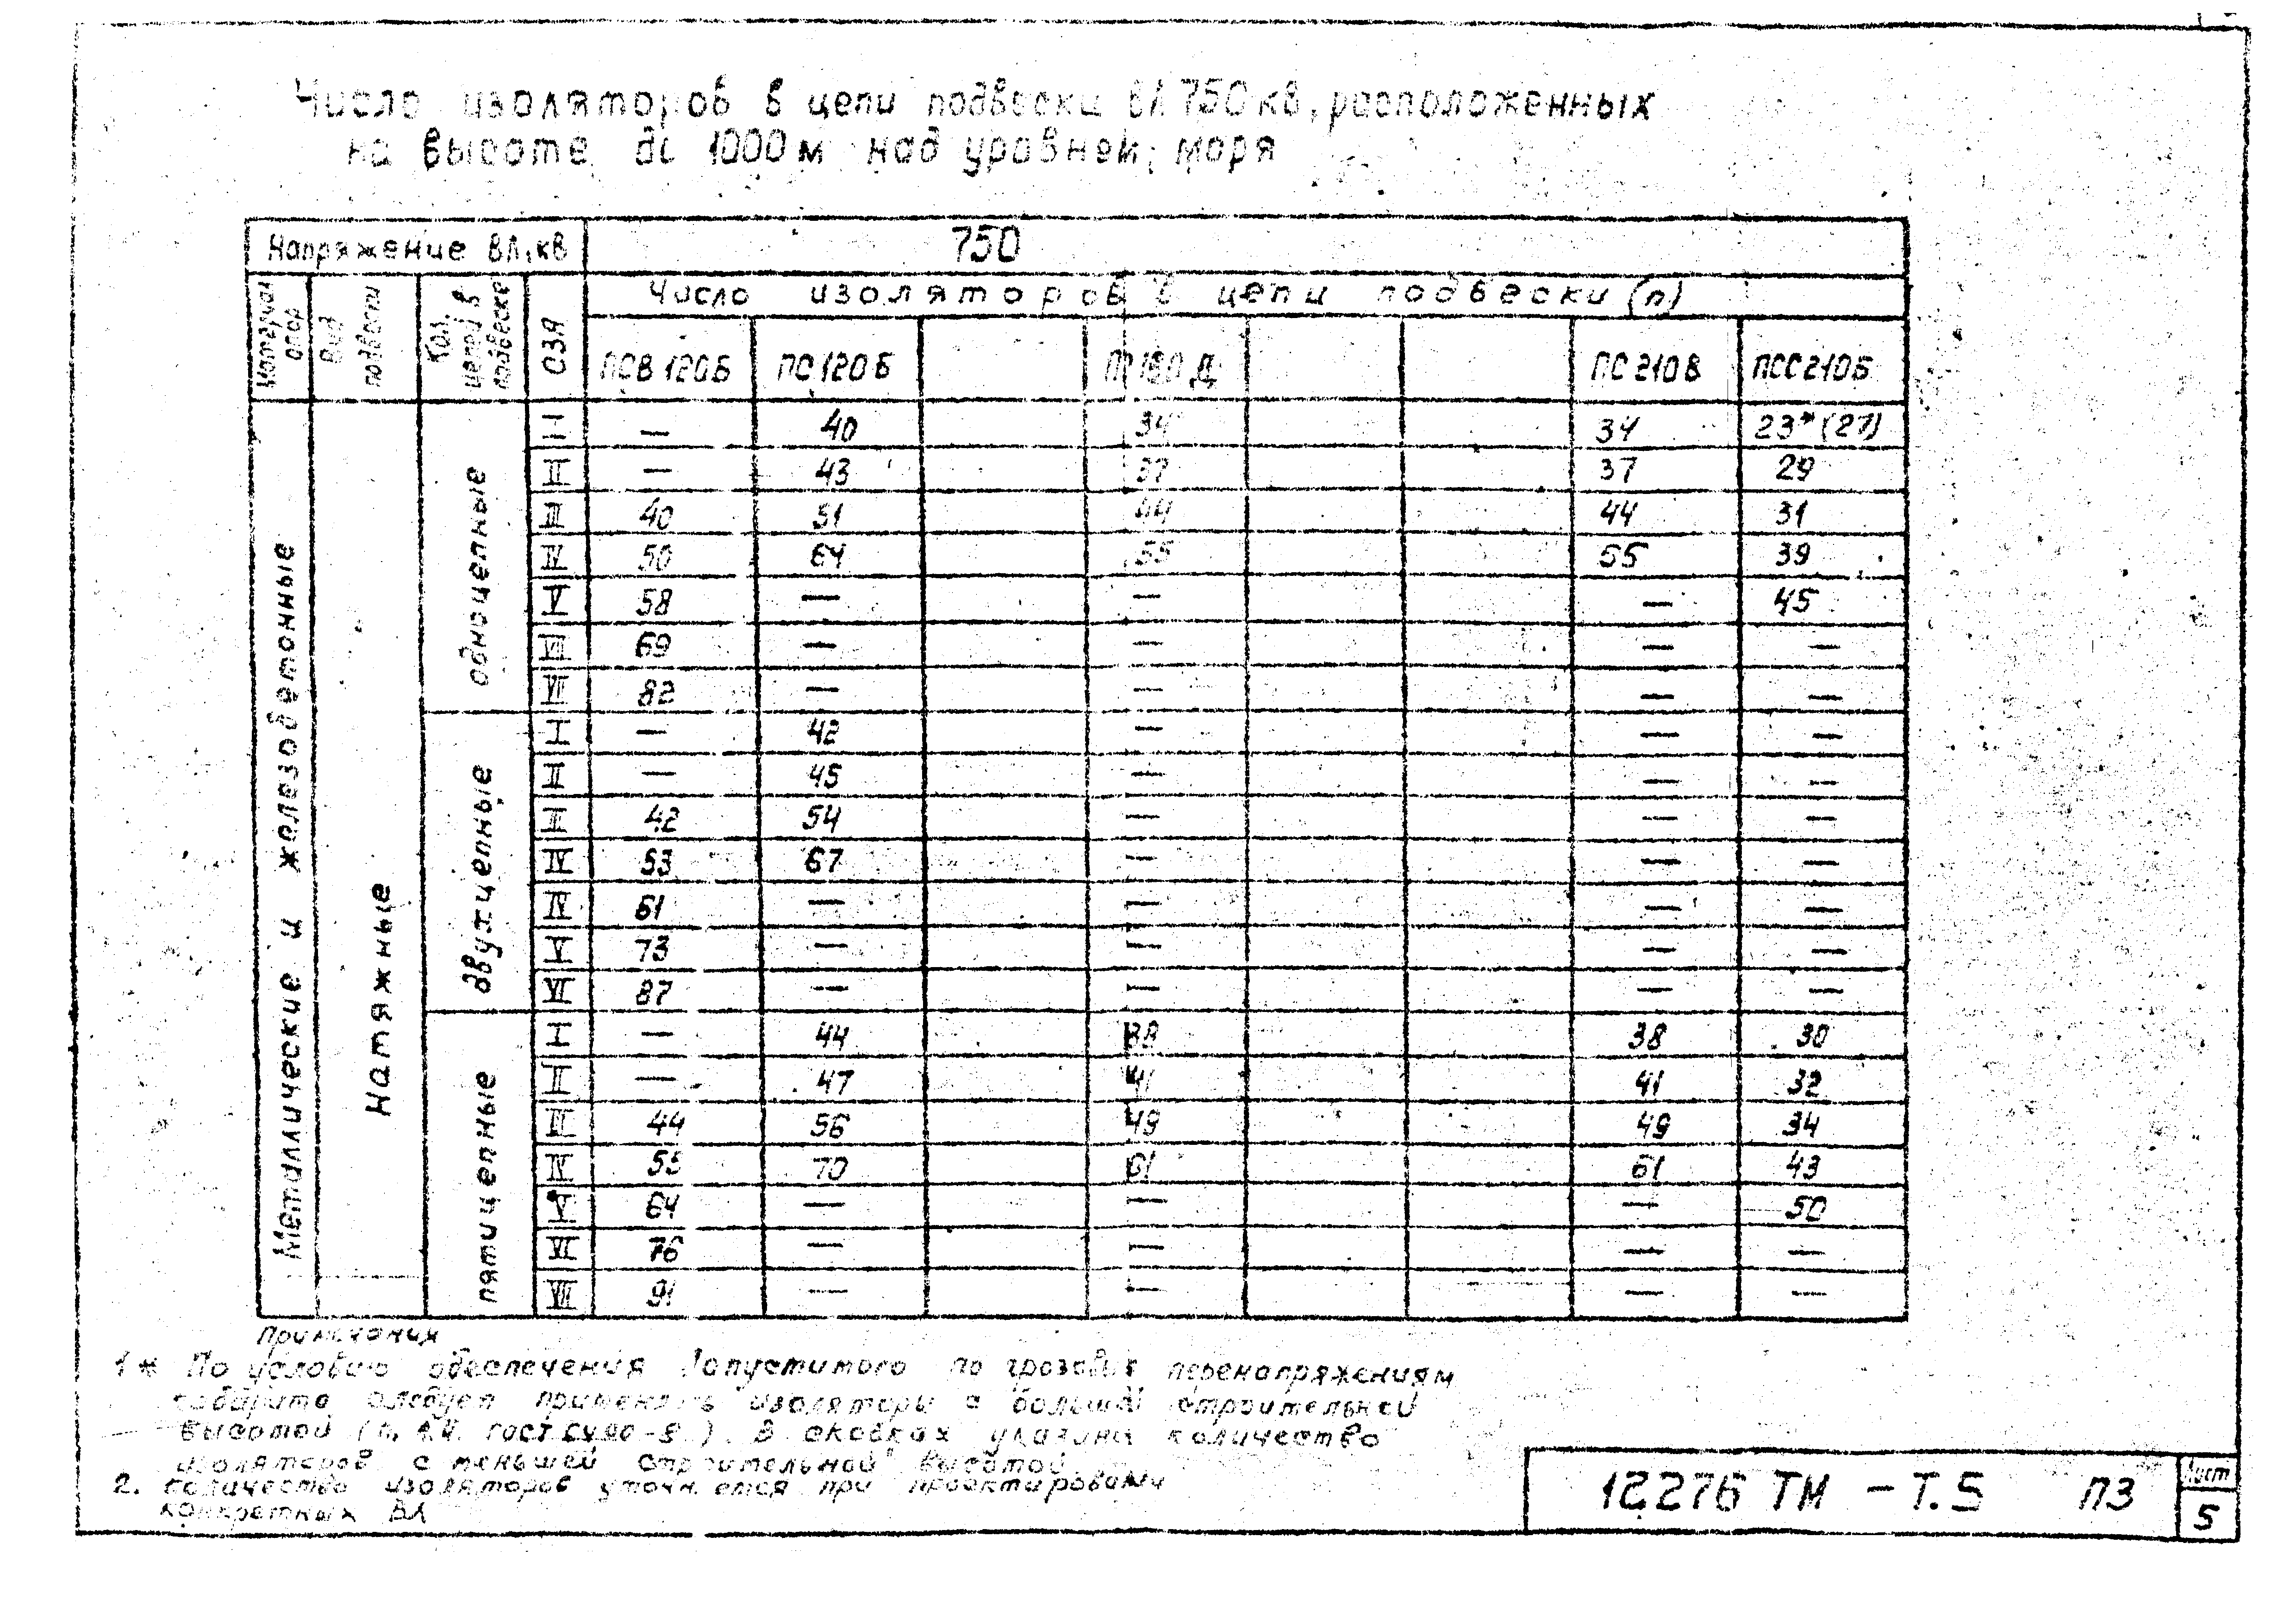 Число изоляторов в цепи подвески ВЛ 750 кВ, расположенных
на высоте до 1000 м над уровнем моря
Напряжение ВЛ, кВ 750
Материал опор Вид подвески Кол. цепей в подвеске СЗА Число изоляторов в цепи подвески (n)
ПСВ 120Б ПС 120Б ПС 210В ПСС 210Б
Металлические и железобетонные
Натяжные
одноцепные
I — 40 34 34 23* (27)
II — 43 37 37 29
III 40 51 44 44 31
IV 50 64 55 55 39
V 58 — — — 45
VII 69 — — — —
VII 82 — — — —
двухцепные
I — 42 — — —
II — 45 — — —
III 42 54 — — —
IV 53 67 — — —
IV 61 — — — —
V 73 — — — —
VI 87 — — — —
пятицепные
I — 44 38 38 30
II — 47 41 41 32
III 44 56 49 49 34
IV 55 70 61 61 43
V 64 — — — 50
VI 76 — — — —
VII 91 — — — —
Примечания
1* По условию обеспечения допустимого по грозовым перенапряжениям
габарита следует применять изоляторы с большей строительной
высотой (п. ГОСТ). В скобках указано количество
изоляторов с меньшей строительной высотой
2. Количество изоляторов уточняется при проектировании
конкретных ВЛ
12276 ТМ – Т.5 ПЗ
Лист
5